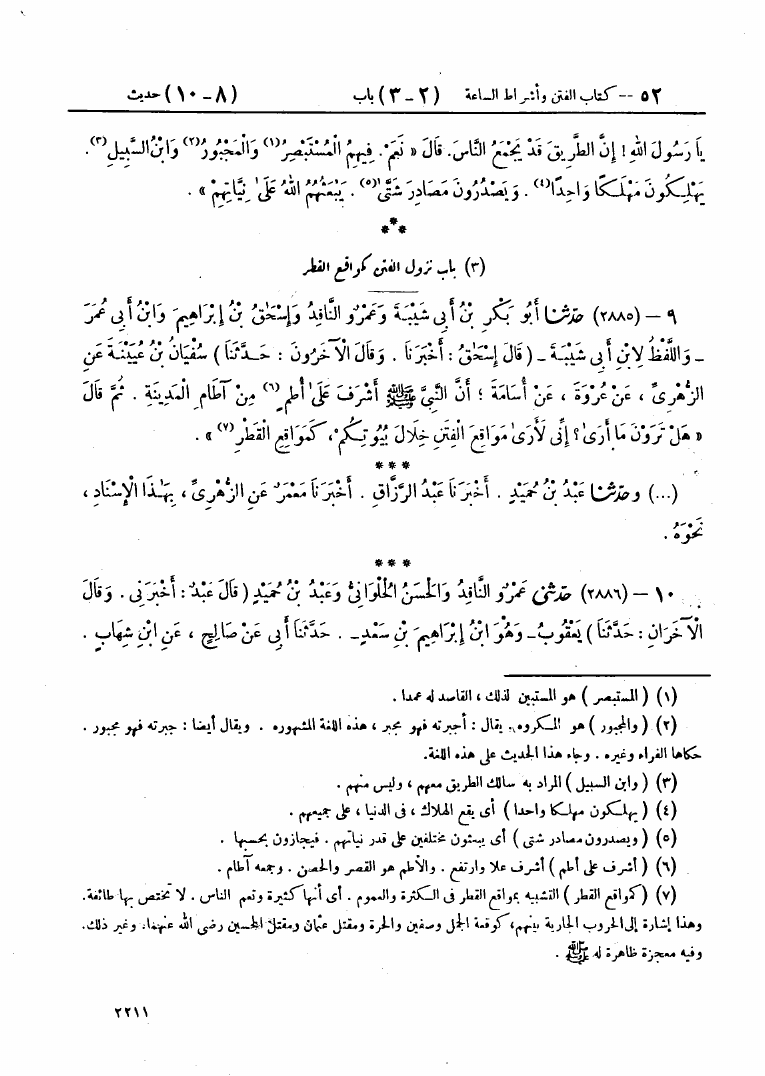 ٥٢ -- كتاب الفتن وأشراط الساعة (٢ - ٣) باب (٨ - ١٠) حديث
يَا رَسُولَ اللهِ! إِنَّ الطَّرِيقَ قَدْ يَجْمَعُ النَّاسَ. قَالَ « نَعَمْ. فِيهِمُ الْمُسْتَبْصِرُ(١) وَالْمَجْبُورُ(٢) وَابْنُ السَّبِيلِ(٣).
يَهْلِكُونَ مَهْلَكًا وَاحِدًا(٤). وَيَصْدُرُونَ مَصَادِرَ شَتَّىٰ(٥). يَبْعَثُهُمُ اللهُ عَلَىٰ نِيَّاتِهِمْ ».
***
(٣) باب نزول الفتن كمواقع القطر
٩ - (٢٨٨٥) حدّثنا أَبُو بَكْرِ بْنُ أَبِي شَيْبَةَ وَعَمْرٌو النَّاقِدُ وَإِسْحَٰقُ بْنُ إِبْرَاهِيمَ وَابْنُ أَبِي عُمَرَ
- وَاللَّفْظُ لِابْنِ أَبِي شَيْبَةَ - ( قَالَ إِسْحَٰقُ : أَخْبَرَنَا . وَقَالَ الْآخَرُونَ : حَدَّثَنَا ) سُفْيَانُ بْنُ عُيَيْنَةَ عَنِ
الزُّهْرِيِّ ، عَنْ عُرْوَةَ ، عَنْ أُسَامَةَ ؛ أَنَّ النَّبِيَّ ﷺ أَشْرَفَ عَلَىٰ أُطُمٍ(٦) مِنْ آطَامِ الْمَدِينَةِ . ثُمَّ قَالَ
« هَلْ تَرَوْنَ مَا أَرَىٰ؟ إِنِّي لَأَرَىٰ مَوَاقِعَ الْفِتَنِ خِلَالَ بُيُوتِكُمْ، كَمَوَاقِعِ الْقَطْرِ(٧) ».
***
(...) وحدّثنا عَبْدُ بْنُ حُمَيْدٍ . أَخْبَرَنَا عَبْدُ الرَّزَّاقِ . أَخْبَرَنَا مَعْمَرٌ عَنِ الزُّهْرِيِّ ، بِهَٰذَا الْإِسْنَادِ ،
نَحْوَهُ .
***
١٠ - (٢٨٨٦) حدّثني عَمْرٌو النَّاقِدُ وَالْحَسَنُ الْحُلْوَانِيُّ وَعَبْدُ بْنُ حُمَيْدٍ ( قَالَ عَبْدٌ : أَخْبَرَنِي . وَقَالَ
الْآخَرَانِ : حَدَّثَنَا ) يَعْقُوبُ - وَهُوَ ابْنُ إِبْرَاهِيمَ بْنِ سَعْدٍ - . حَدَّثَنَا أَبِي عَنْ صَالِحٍ ، عَنِ ابْنِ شِهَابٍ .
(١) ( المستبصر ) هو المستبين لذلك ، القاصد له عمدا .
(٢) ( والمجبور ) هو المكروه. يقال : أجبرته فهو مجبر ، هذه اللغة المشهوره . ويقال أيضا : جبرته فهو مجبور .
حكاها الفراء وغيره . وجاء هذا الحديث على هذه اللغة.
(٣) ( وابن السبيل ) المراد به سالك الطريق معهم ، وليس منهم .
(٤) ( يهلكون مهلكا واحدا ) أى يقع الهلاك ، فى الدنيا ، على جميعهم .
(٥) ( ويصدرون مصادر شتى ) أى يبعثون مختلفين على قدر نياتهم . فيجازون بحسبها .
(٦) ( أشرف على أطم ) أشرف علا وارتفع . والأطم هو القصر والحصن . وجمعه آطام .
(٧) ( كمواقع القطر ) التشبيه بمواقع القطر فى الكثرة والعموم . أى أنها كثيرة وتعم الناس . لا تختص بها طائفة.
وهذا إشارة إلى الحروب الجارية بينهم، كوقعة الجمل وصفين والحرة ومقتل عثمان ومقتل الحسين رضى الله عنهما. وغير ذلك.
وفيه معجزة ظاهرة له ﷺ .
٢٢١١